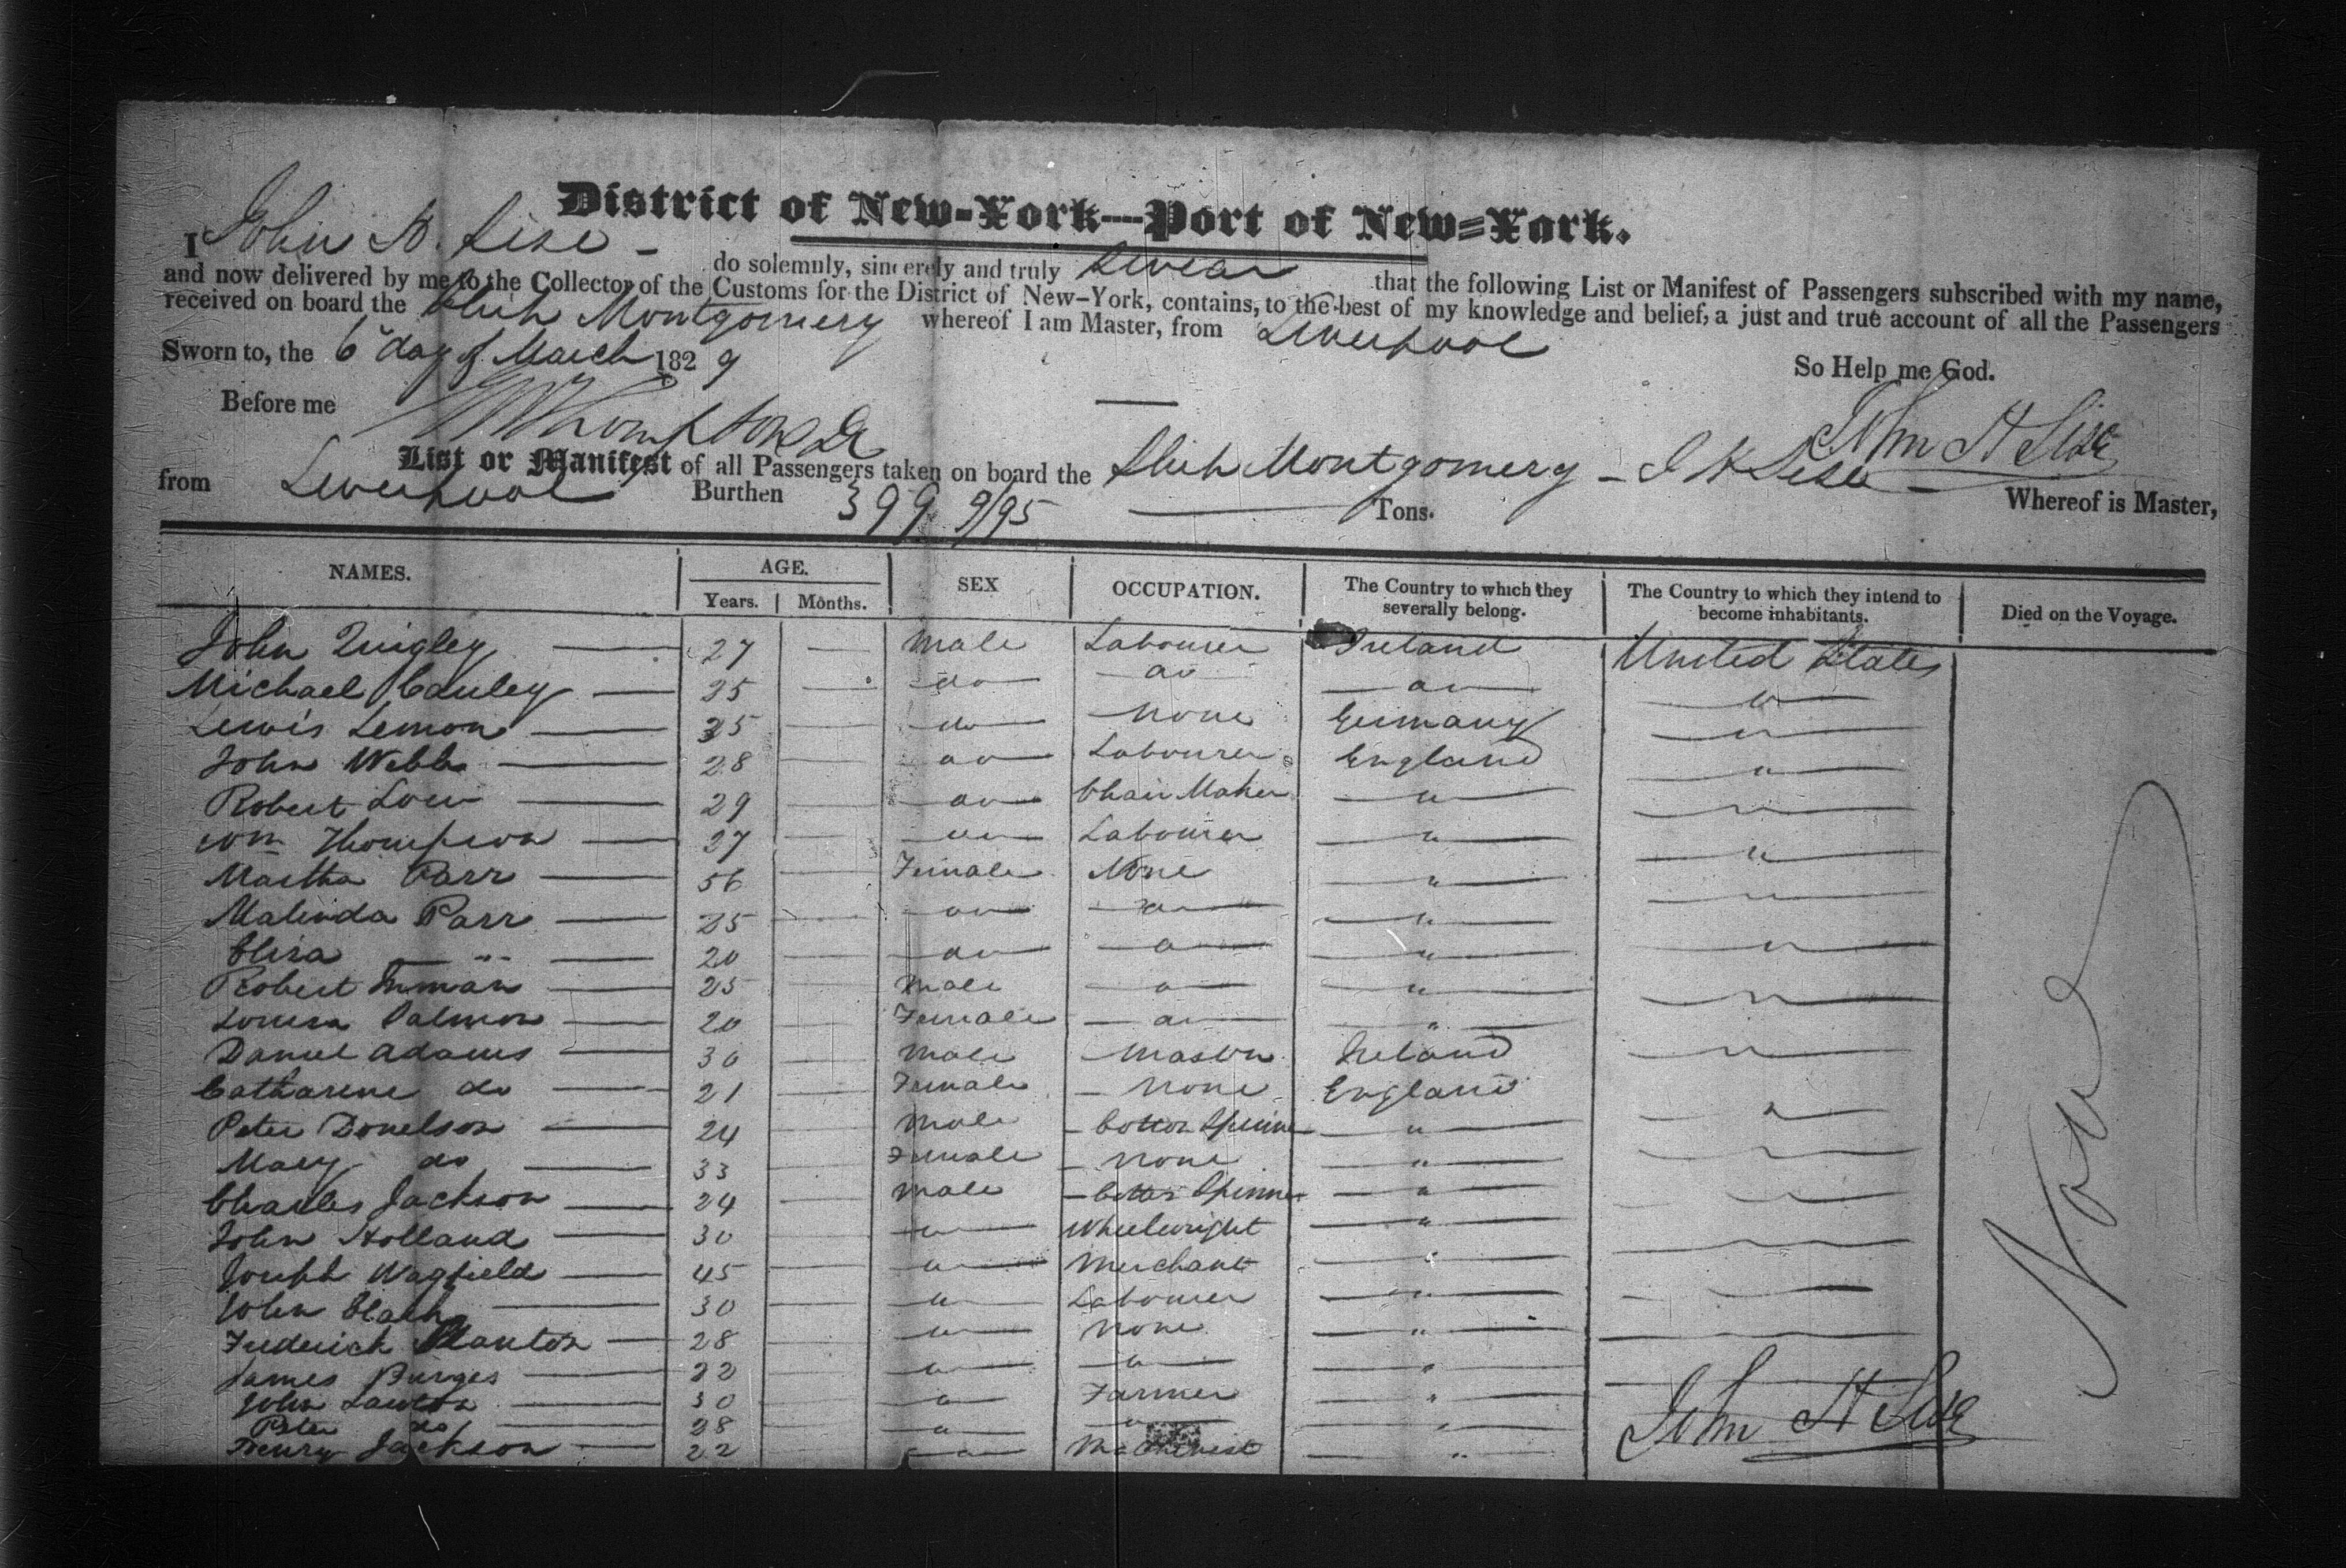 District of New-York---Port of New-York.
I John H. Sise - do solemnly, sincerely and truly Swear that the following List or Manifest of Passengers subscribed with my name,
and now delivered by me to the Collector of the Customs for the District of New-York, contains, to the best of my knowledge and belief, a just and true account of all the Passengers
received on board the Ship Montgomery whereof I am Master, from Liverpool
Sworn to, the 6 day of March 1829 So Help me God.
Before me Thompson John H Sise
List or Manifest of all Passengers taken on board the Ship Montgomery - J H Sise Whereof is Master,
from Liverpool Burthen 399 9/95 Tons.
NAMES. AGE. SEX OCCUPATION. The Country to which they severally belong. The Country to which they intend to become inhabitants. Died on the Voyage.
Years. Months.
John Quigley 27 Male Labourer Ireland United States
Michael Cauley 25 do do do "
Lewis Lemon 25 do None Germany "
John Webb 28 do Labourer England "
Robert Low 29 do Chair Maker " "
Wm Thompson 27 do Labourer " "
Martha Parr 56 Female None " "
Malinda Parr 25 do do " "
Eliza " 20 do do " "
Robert Inman 25 Male do " "
Louisa Palmer 20 Female do " "
Daniel Adams 30 Male Mason Ireland "
Catharine do 21 Female None England "
Peter Donelson 24 Male Cotton Spinner " "
Mary do 33 Female None " "
Charles Jackson 24 Male Cotton Spinner " "
John Holland 30 do Wheelwright " "
Joseph Wagfield 45 do Merchant "
John Black 30 do Labourer "
Frederick Stanton 28 do None "
James Burges 22 do do "
John Lawton 30 do Farmer "
Peter do 28 do do "
Henry Jackson 22 do Machinist "
None
John H Sise